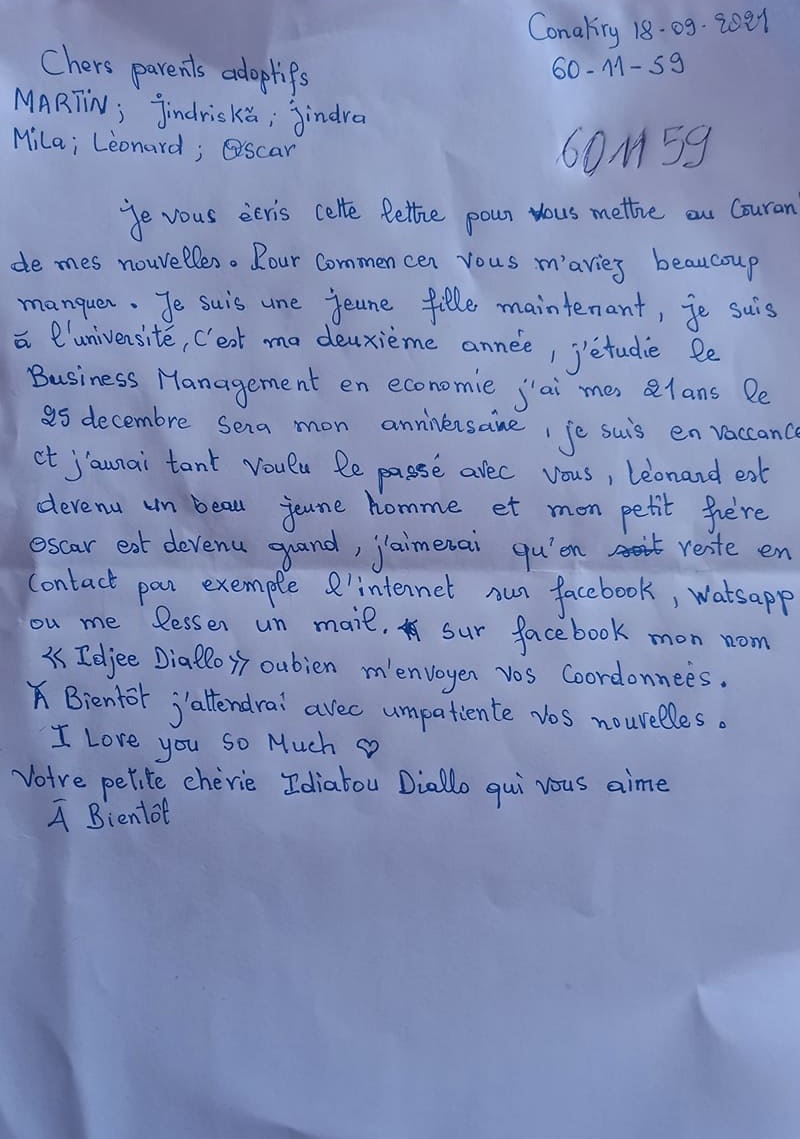 Conakry 18-09-2021
60-11-59
601159
Chers parents adoptifs
MARTIN; Jindriskă; Jindra
Mila; Lèonard; Oscar
Je vous ècris cette lettre pour vous mettre au Couran
de mes nouvelles. Pour commencer vous m'aviez beaucoup
manquer. Je suis une jeune fille maintenant, je suis
à l'université, C'est ma deuxième année, j'étudie le
Business Management en economie j'ai mes 21 ans le
25 decembre sera mon anniversaire, je suis en vaccance
et j'aurai tant voulu le passé avec vous, Lèonard est
devenu un beau jeune homme et mon petit frère
Oscar est devenu grand, j'aimerai qu'on soit reste en
Contact par exemple l'internet sur facebook, Watsapp
ou me lesser un mail. sur facebook mon nom
« Idjee Diallo » oubien m'envoyer vos Coordonneès.
À Bientôt j'attendrai avec umpatiente vos nouvelles.
I Love you so Much ♡
Votre petite chèrie Idiatou Diallo qui vous aime
À Bientôt